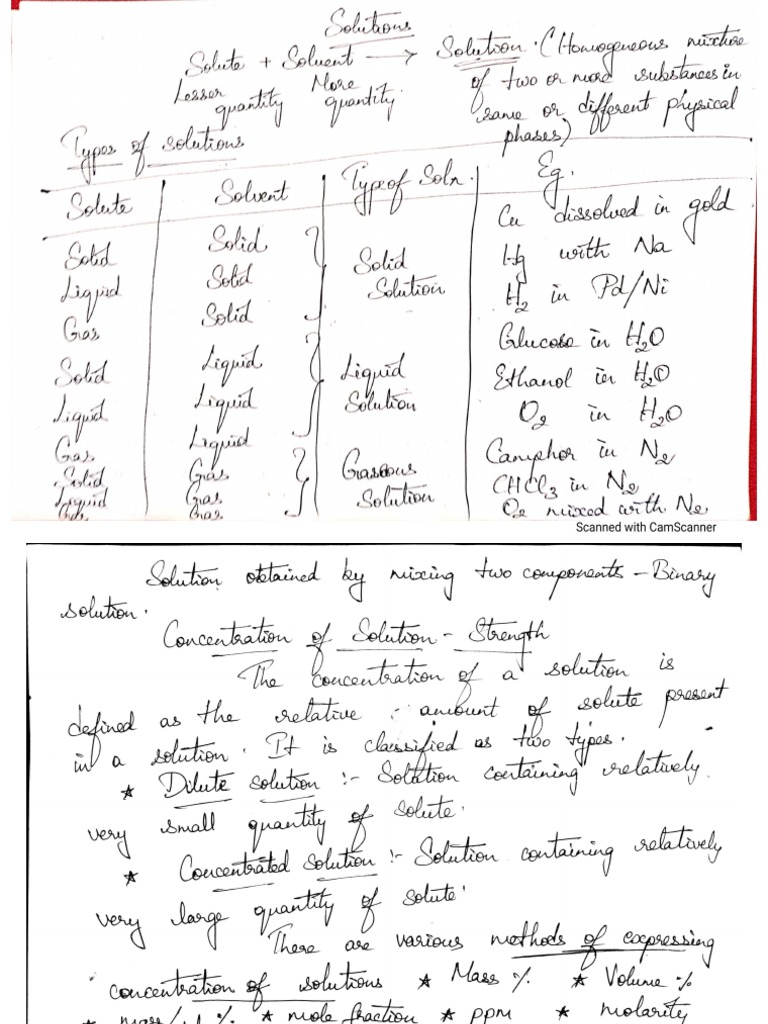 Solutions
Solute + Solvent → Solution. (Homogeneous mixture
Lesser quantity More quantity. of two or more substances in
same or different physical
phases)
Types of solutions
Solute Solvent Type of Soln. Eg.
Solid Solid Cu dissolved in gold
Liquid Solid Solid Solution Hg with Na
Gas Solid H2 in Pd/Ni
Solid Liquid Glucose in H2O
Liquid Liquid Liquid Solution Ethanol in H2O
Gas Liquid O2 in H2O
Solid Gas Camphor in N2
Liquid Gas Gaseous Solution CHCl3 in N2
Gas Gas O2 mixed with N2
Scanned with CamScanner
Solution obtained by mixing two components - Binary
solution.
Concentration of Solution - Strength
The concentration of a solution is
defined as the relative amount of solute present
in a solution. It is classified as two types.
* Dilute solution :- Solution containing relatively
very small quantity of solute.
* Concentrated solution :- Solution containing relatively
very large quantity of solute.
There are various methods of expressing
concentration of solutions * Mass % * Volume %
* mole fraction * ppm * molarity